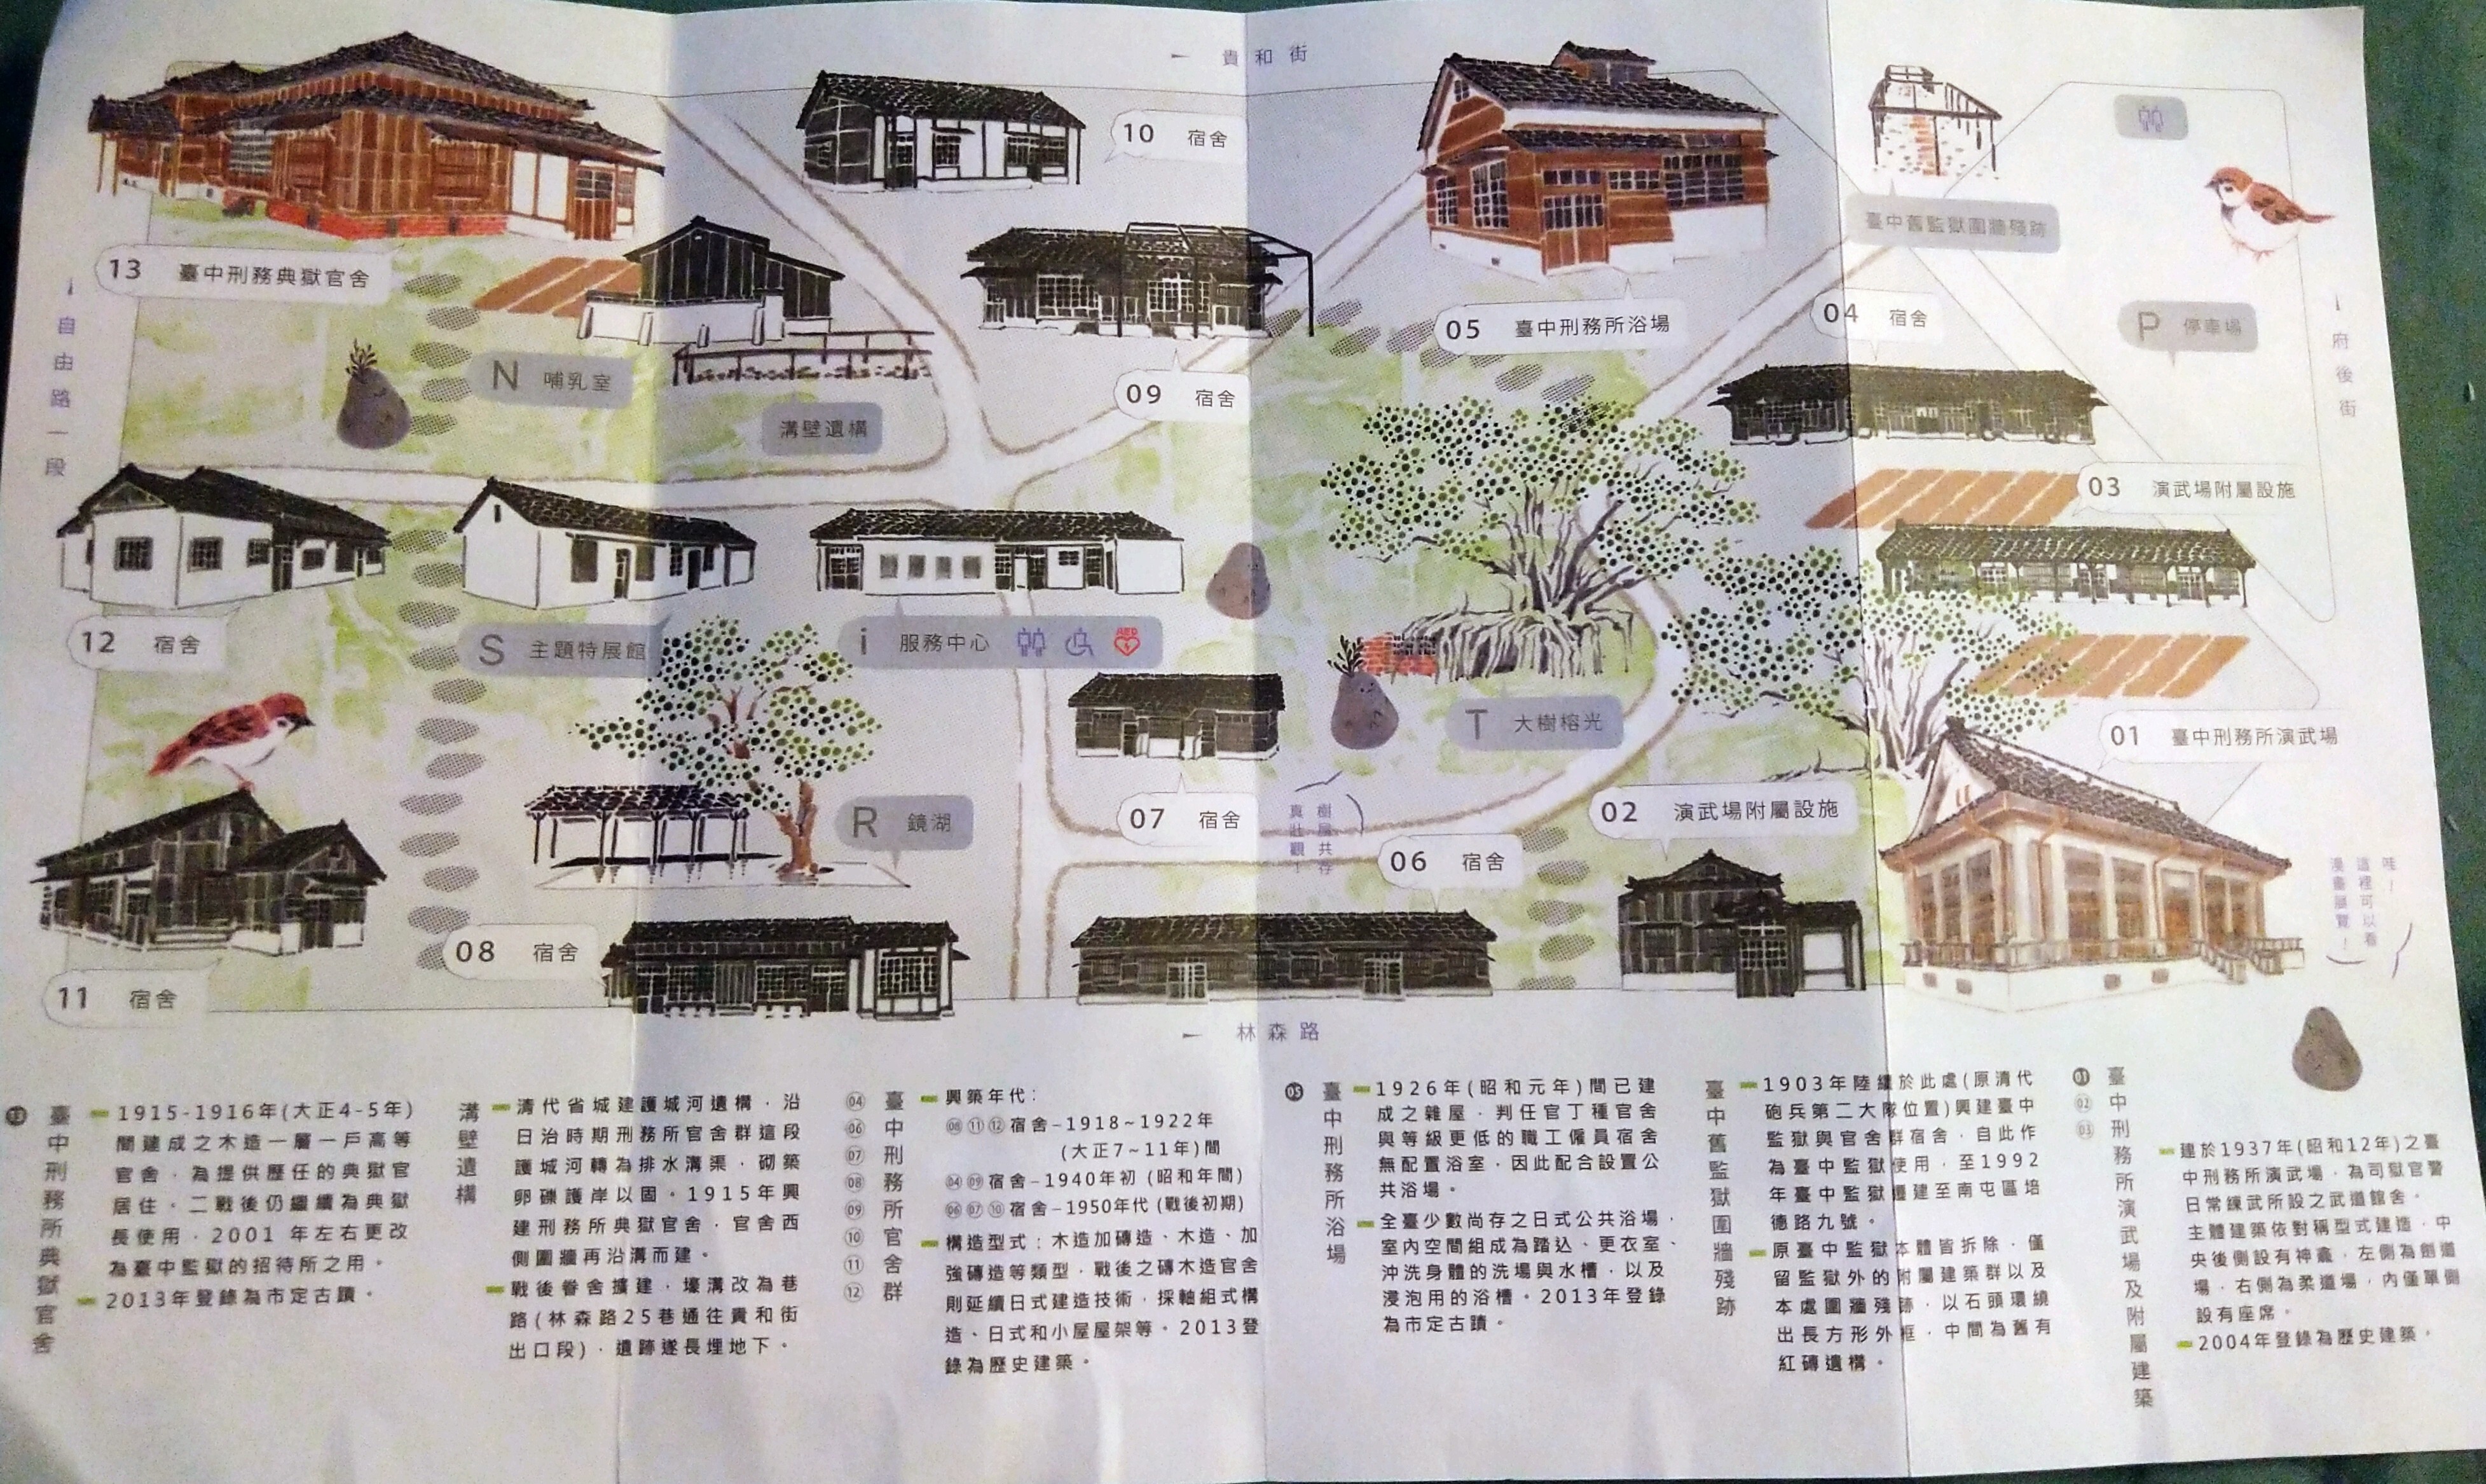 貴和街
10 宿舍
13 臺中刑務典獄官舍
臺中舊監獄圍牆殘跡
05 臺中刑務所浴場
04 宿舍
P 停車場
自由路一段
府後街
N 哺乳室
09 宿舍
溝壁遺構
03 演武場附屬設施
12 宿舍
S 主題特展館
i 服務中心
AED
T 大樹榕光
01 臺中刑務所演武場
R 鏡湖
07 宿舍
樹屋共存
真壯觀！
02 演武場附屬設施
06 宿舍
哇！
這裡可以看
漫畫展覽！
08 宿舍
11 宿舍
林森路
13 臺中刑務所典獄官舍
1915-1916年(大正4-5年)
間建成之木造一層一戶高等
官舍，為提供歷任的典獄官
居住。二戰後仍繼續為典獄
長使用，2001 年左右更改
為臺中監獄的招待所之用。
2013年登錄為市定古蹟。
溝壁遺構
清代省城建護城河遺構，沿
日治時期刑務所官舍群這段
護城河轉為排水溝渠，砌築
卵礫護岸以固。1915年興
建刑務所典獄官舍，官舍西
側圍牆再沿溝而建。
戰後眷舍擴建，壕溝改為巷
路(林森路25巷通往貴和街
出口段)，遺跡遂長埋地下。
04 06 07 08 09 10 11 12
臺中刑務所官舍群
興築年代：
08 11 12 宿舍–1918~1922年
(大正7~11年)間
04 09 宿舍–1940年初 (昭和年間)
06 07 10 宿舍–1950年代 (戰後初期)
構造型式：木造加磚造、木造、加
強磚造等類型，戰後之磚木造官舍
則延續日式建造技術，採軸組式構
造、日式和小屋屋架等。2013登
錄為歷史建築。
05 臺中刑務所浴場
1926年(昭和元年)間已建
成之雜屋，判任官丁種官舍
與等級更低的職工傭員宿舍
無配置浴室，因此配合設置公
共浴場。
全臺少數尚存之日式公共浴場，
室內空間組成為踏込、更衣室、
沖洗身體的洗場與水槽，以及
浸泡用的浴槽。2013年登錄
為市定古蹟。
臺中舊監獄圍牆殘跡
1903年陸續於此處(原清代
砲兵第二大隊位置)興建臺中
監獄與官舍群宿舍，自此作
為臺中監獄使用，至1992
年臺中監獄遷建至南屯區培
德路九號。
原臺中監獄本體皆拆除，僅
留監獄外的附屬建築群以及
本處圍牆殘跡，以石頭環繞
出長方形外框，中間為舊有
紅磚遺構。
01 02 03
臺中刑務所演武場及附屬建築
建於1937年(昭和12年)之臺
中刑務所演武場，為司獄官警
日常練武所設之武道館舍。
主體建築依對稱型式建造，中
央後側設有神龕，左側為劍道
場，右側為柔道場，內僅單側
設有座席。
2004年登錄為歷史建築，